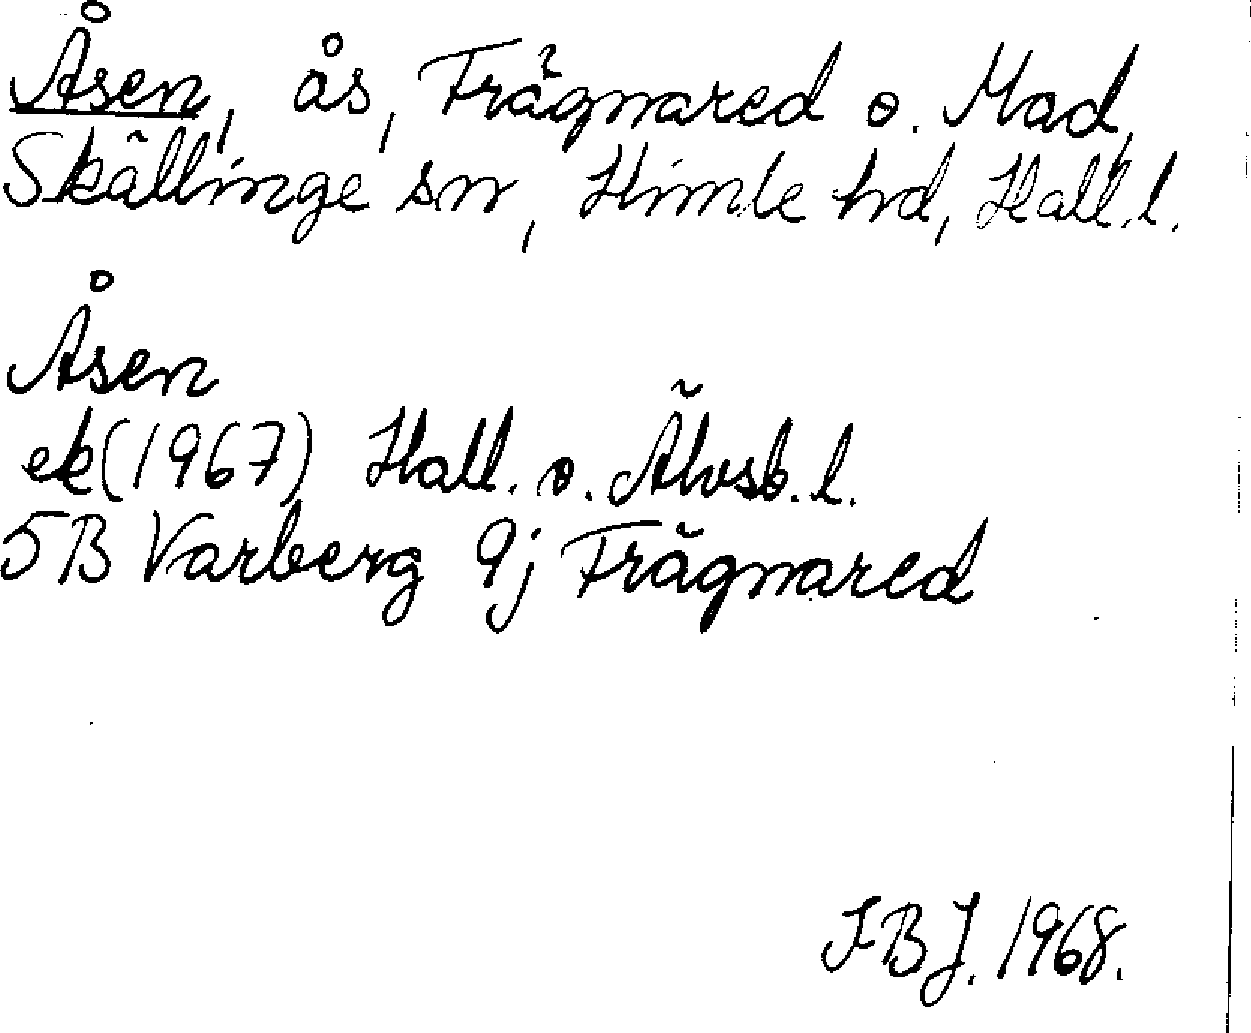 Åsen, ås, Frägnared o. Mad,
Skällinge sn, Himle hd, Hall. l.
Åsen
ek (1967) Hall. o. Älvsb. l.
5B Varberg 9j Frägnared
F B J. 1968.